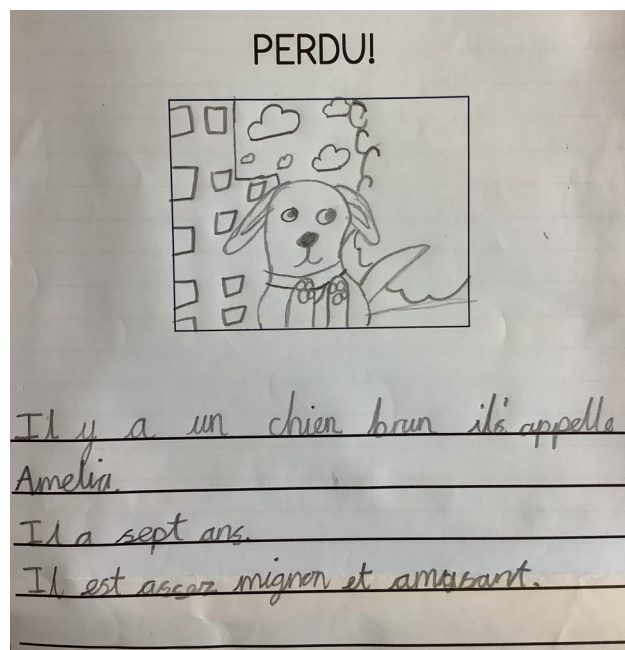 PERDU!
Il y a un chien brun ils'appelle
Amelia.
Il a sept ans.
Il est assez mignon et amusant.